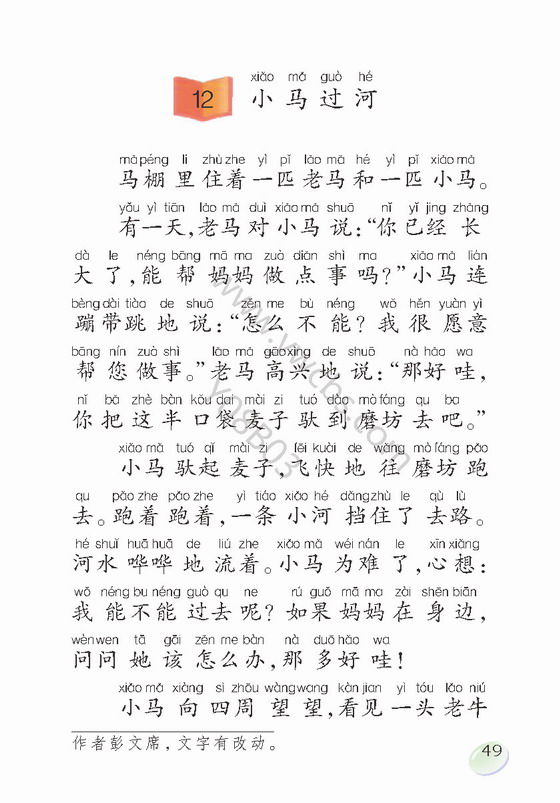 xiǎo mǎ guò hé
12 小马过河
mǎ péng li zhù zhe yì pǐ lǎo mǎ hé yì pǐ xiǎo mǎ
马棚里住着一匹老马和一匹小马。
yǒu yì tiān lǎo mǎ duì xiǎo mǎ shuō nǐ yǐ jing zhǎng
有一天,老马对小马说:“你已经长
dà le néng bāng mā ma zuò diǎn shì ma xiǎo mǎ lián
大了,能帮妈妈做点事吗?”小马连
bèng dài tiào de shuō zěn me bù néng wǒ hěn yuàn yì
蹦带跳地说:“怎么不能?我很愿意
bāng nín zuò shì lǎo mǎ gāo xìng de shuō nà hǎo wa
帮您做事。”老马高兴地说:“那好哇,
nǐ bǎ zhè bàn kǒu dai mài zi tuó dào mò fáng qu ba
你把这半口袋麦子驮到磨坊去吧。”
xiǎo mǎ tuó qǐ mài zi fēi kuài de wǎng mò fáng pǎo
小马驮起麦子,飞快地往磨坊跑
qu pǎo zhe pǎo zhe yì tiáo xiǎo hé dǎng zhù le qù lù
去。跑着跑着,一条小河挡住了去路。
hé shuǐ huā huā de liú zhe xiǎo mǎ wéi nán le xīn xiǎng
河水哗哗地流着。小马为难了,心想:
wǒ néng bu néng guò qu ne rú guǒ mā ma zài shēn biān
我能不能过去呢?如果妈妈在身边,
wèn wen tā gāi zěn me bàn nà duō hǎo wa
问问她该怎么办,那多好哇!
xiǎo mǎ xiàng sì zhōu wàng wang kàn jian yì tóu lǎo niú
小马向四周望望,看见一头老牛
作者彭文席,文字有改动。
49